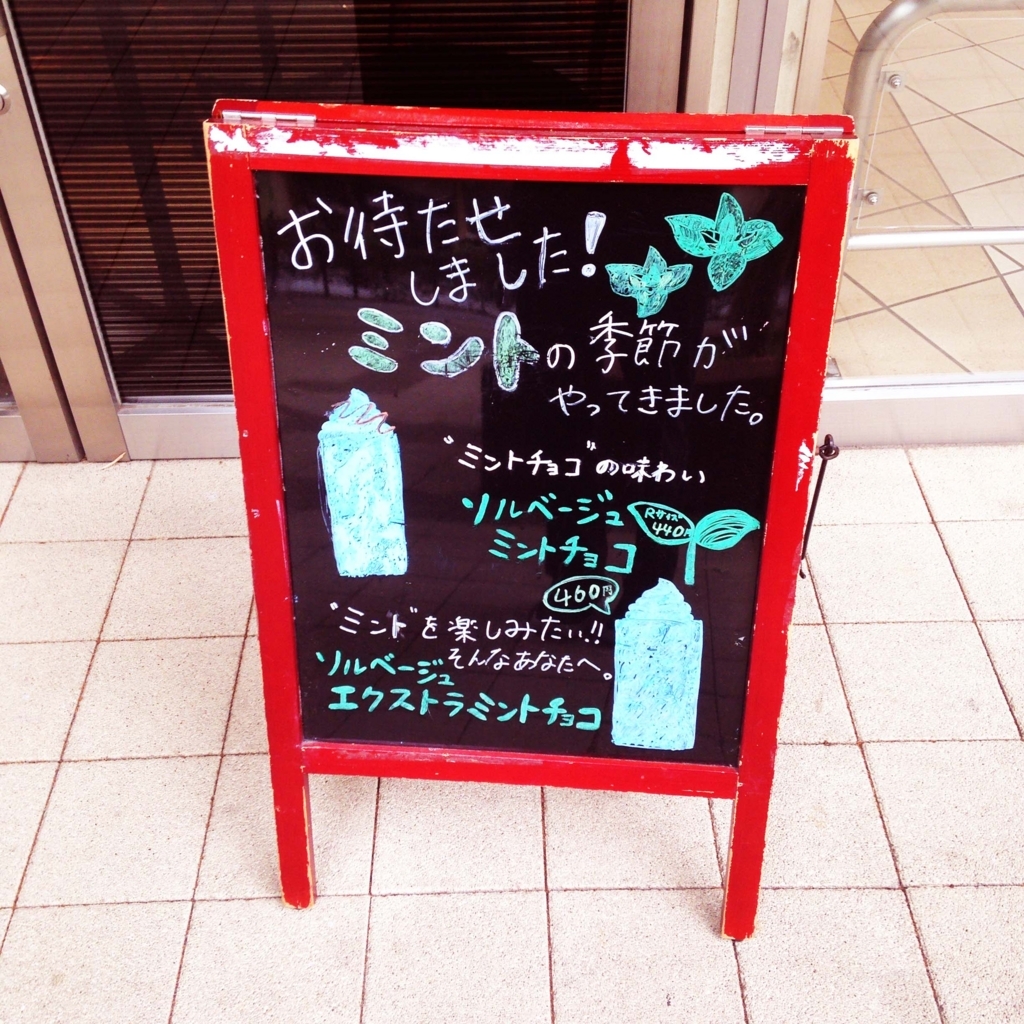 お待たせ
しました!
ミントの季節が
やってきました。
"ミントチョコ"の味わい
ソルベージュ
Rサイズ
440円
ミントチョコ
460円
"ミント"を楽しみたい!!
そんなあなたへ。
ソルベージュ
エクストラミントチョコ